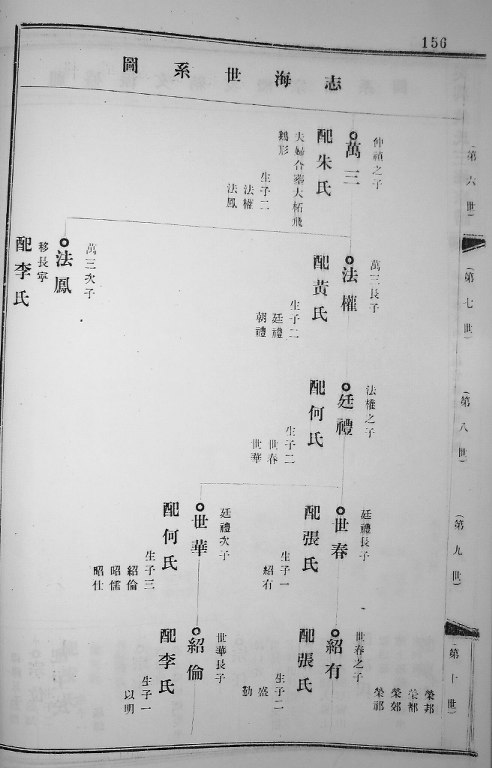 156
志海世系圖
(第六世)
仲禎之子
萬三
配朱氏
夫婦合葬大柘飛
鵝形
生子二
法權
法鳳
(第七世)
萬三長子
法權
配黃氏
生子二
廷禮
朝禮
萬三次子
法鳳
移長寧
配李氏
(第八世)
法權之子
廷禮
配何氏
生子二
世春
世華
(第九世)
廷禮長子
世春
配張氏
生子一
紹有
廷禮次子
世華
配何氏
生子三
紹倫
昭儒
昭仕
(第十世)
榮邦
榮都
榮郊
榮祁
世春之子
紹有
配張氏
生子二
盛
勤
世華長子
紹倫
配李氏
生子一
以明